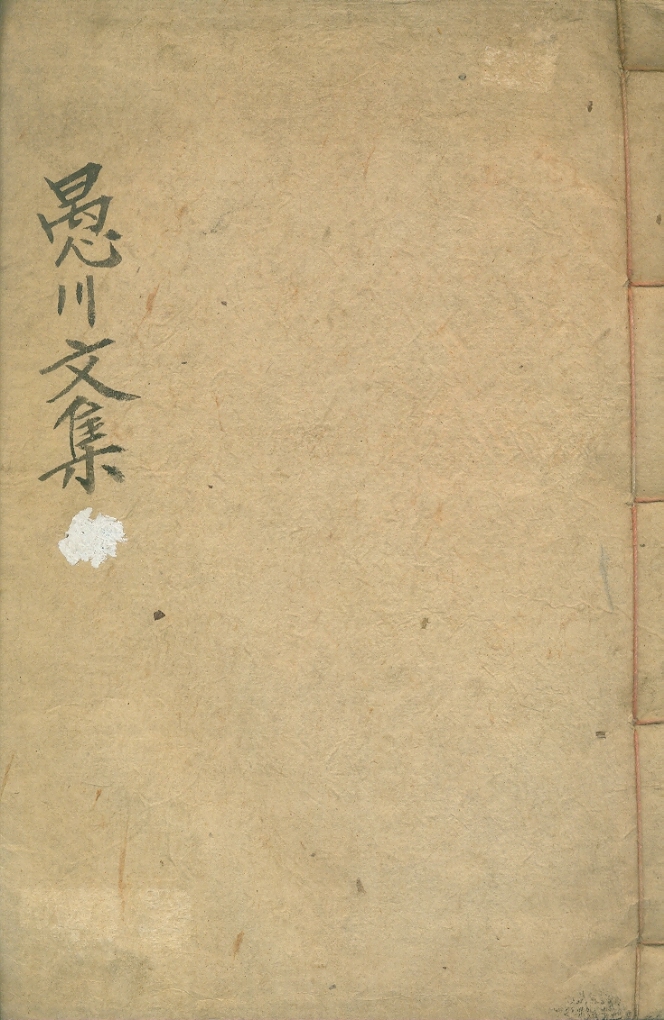 愚川文集